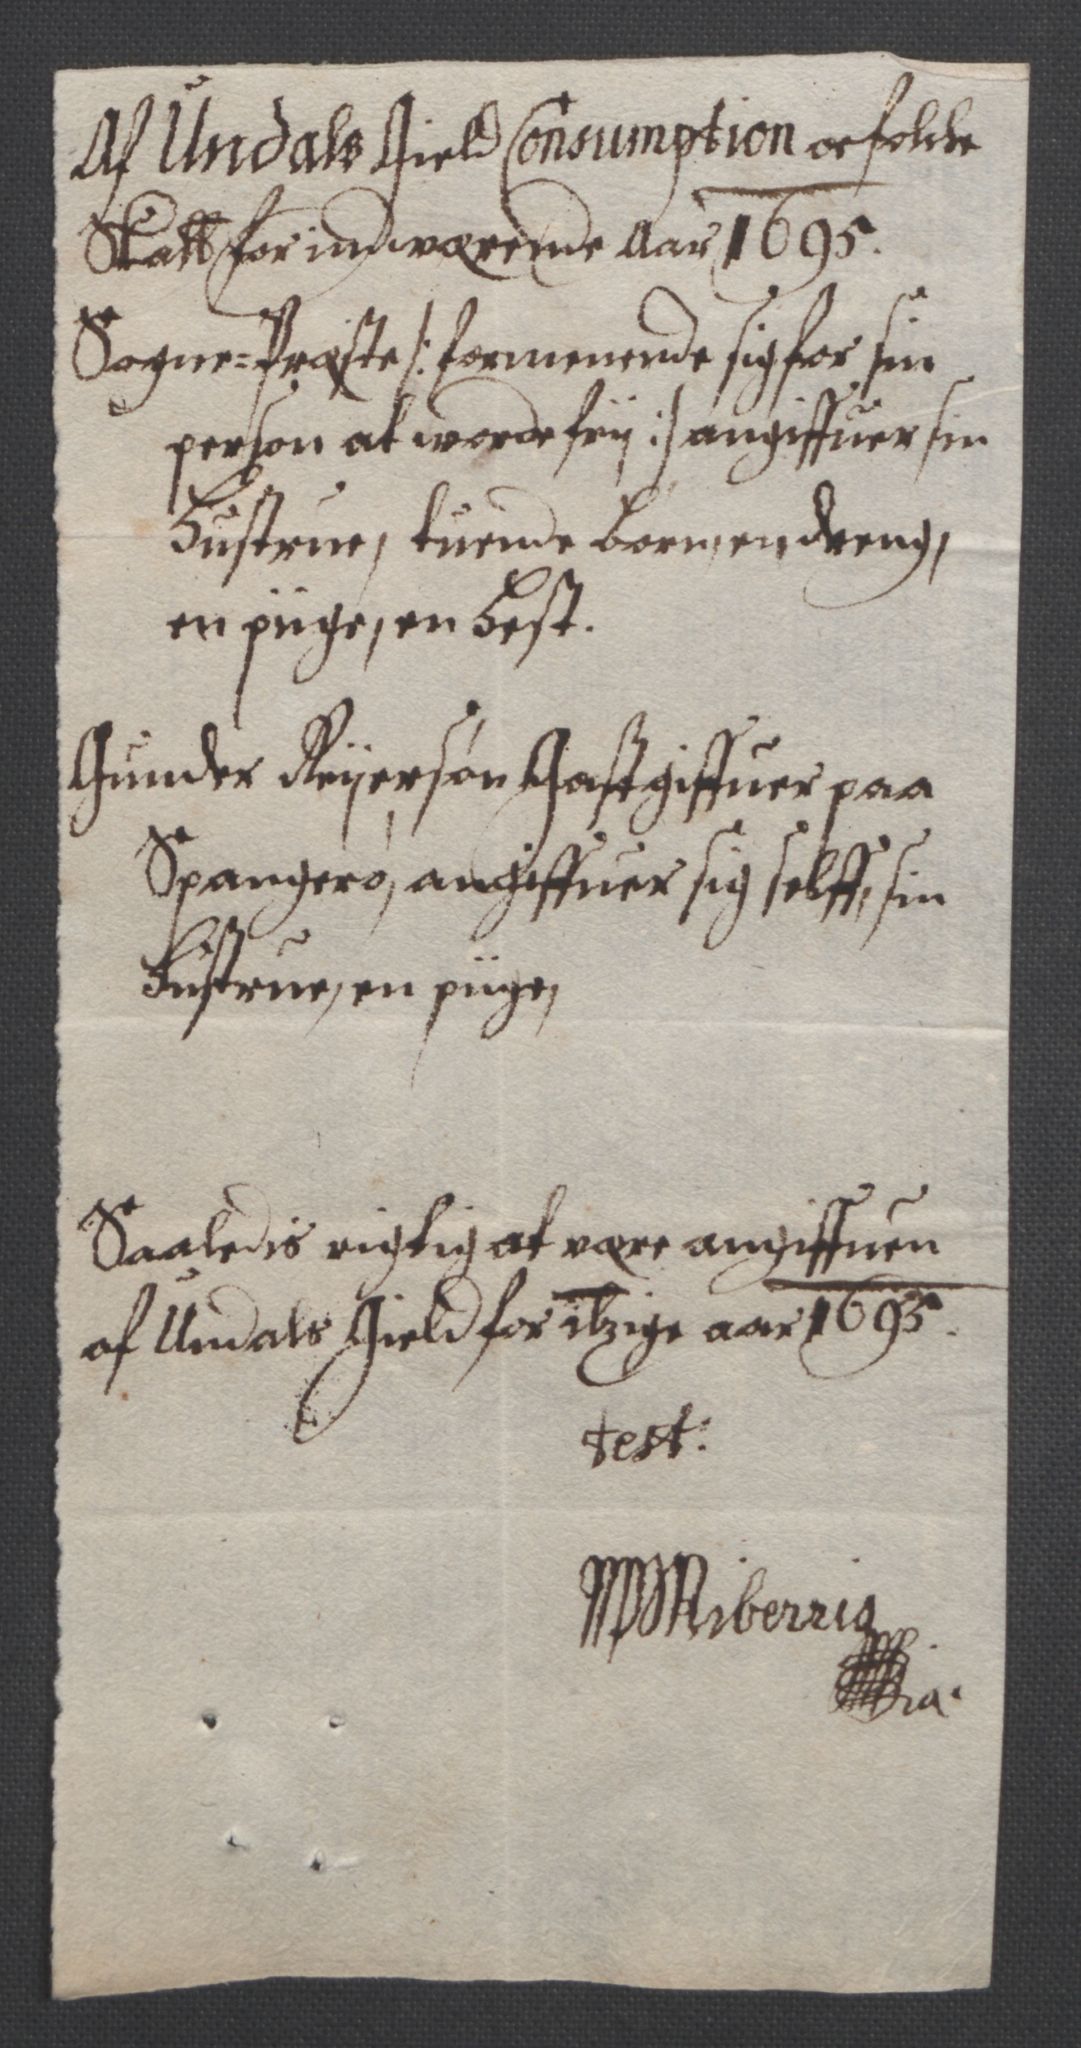 Af Undals Gield Consumption oc folche
Skatt for indværende Aar 1695.
Sogne=Præste /: formenende sig for sin
person at worde frij :/ angiffuer sin
Hustrue, tuende børn, en dreng,
en piige, en Hest.
Gunder Reijersøn Gastgiffuer paa
Spangerø, angiffuer sig selff, sin
Hustrue, en piige,
Saaledis rigtig at være angiffuen
af Undals Gield for itzige aar 1695.
test: